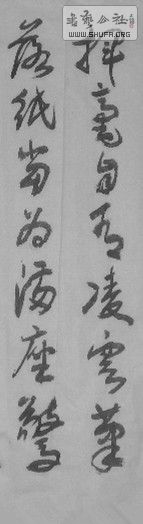 挥毫自有凌云笔
落纸当为满座惊
書藝公社
WWW.SHUFA.ORG